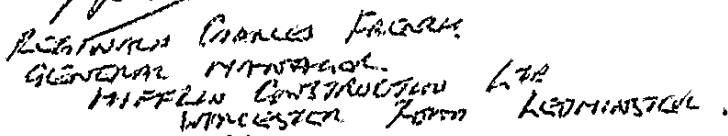 REGINALD CHARLES FRENCH
GENERAL MANAGER.
MIFFLIN CONSTRUCTION LTD
WORCESTER ROAD LEOMINSTER.